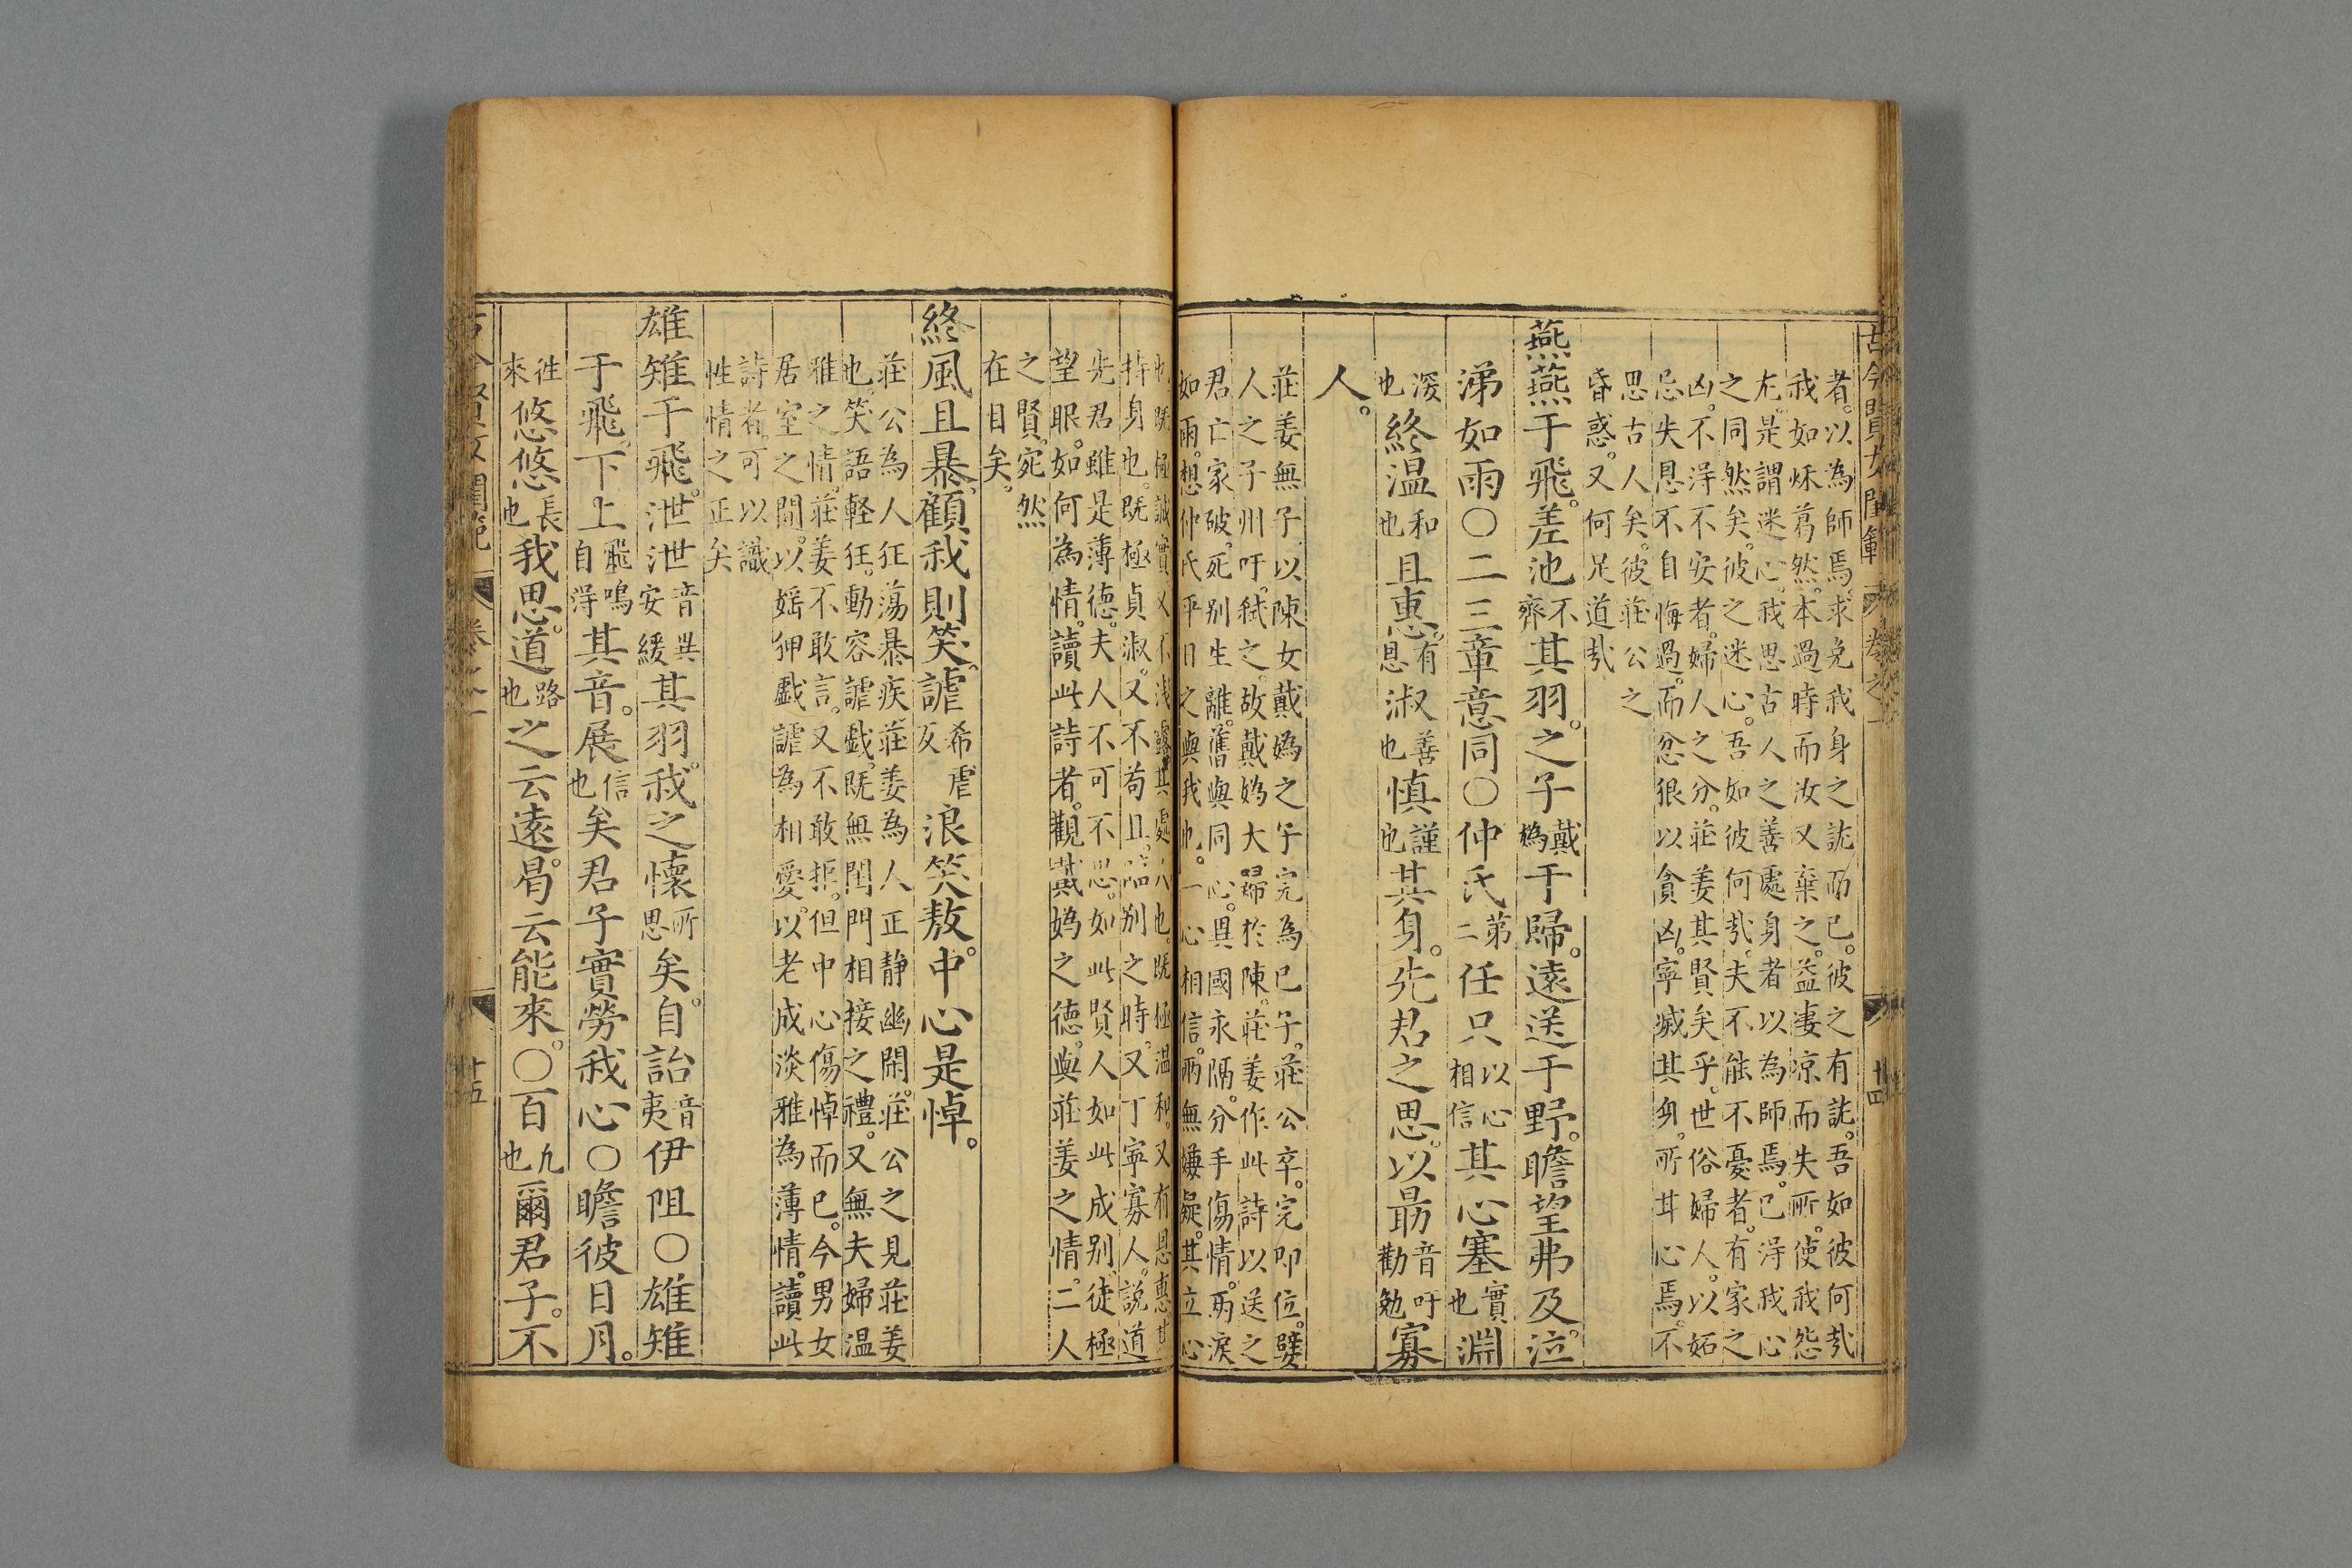 古今賢女閨範 卷之一 十四
者。以為師焉。求免我身之訧而已。彼之有訧。吾如彼何㢤
我如絺葛然。本過時而汝又棄之。益凄凉而失所。使我怨
尤。是謂迷心。我思古人之善處身者以為師焉。已淂我心
之同然矣。彼之迷心。吾如彼何㢤。夫不能不憂者。有家之
凶。不淂不安者。婦人之分。莊姜其賢矣乎。世俗婦人。以妬
忌失恩不自悔過。而忿狠以貪凶。寧滅其身。所甘心焉。不
思古人矣。彼莊公之
昏惑。又何足道㢤
燕燕于飛。差池不齊其羽。之子戴媯于歸。遠送于野。瞻望弗及。泣
涕如雨〇二三章意同〇仲氏第二任只以心相信其心塞實也淵
深也終温和也且惠。有恩淑善也慎謹也其身。先君之思。以勗音吁勸勉寡
人。
莊姜無子。以陳女戴媯之子完為己子。莊公卒。完即位。嬖
人之子州吁。弒之。故戴媯大歸於陳。莊姜作此詩以送之
君亡家破。死别生離。舊與同心。異國永隔。分手傷情。兩淚
如雨。想仲氏平日之與我也。一心相信。兩無嫌疑。其立心
也。既極誠實。又不淺露。其處人也。既極温和。又有恩惠。其
持身也。既極貞淑。又不苟且。臨别之時。又丁寧寡人。説道
先君雖是薄德。夫人不可不思。如此賢人如此成别。徒極
望眼。如何為情。讀此詩者。觀戴媯之德。與莊姜之情。二人
之賢。宛然
在目矣。
終風且暴。顧我則笑。謔希虐反浪笑敖。中心是悼。
莊公為人狂蕩暴疾。莊姜為人正静幽閑。莊公之見莊姜
也。笑語輕狂。動容謔戲。既無閨門相接之禮。又無夫婦温
雅之情。莊姜不敢言。又不敢拒。但中心傷悼而已。今男女
居室之間。以婬狎戲謔為相愛。以老成淡雅為薄情。讀此
詩者。可以識
性情之正矣
雄雉于飛。泄泄音異安緩其羽。我之懷所思矣。自詒音夷伊阻〇雄雉
于飛。下上飛鳴自淂其音。展信也矣君子實勞我心〇瞻彼日月。
悠悠長也我思。道路也之云遠。曷云能來。徃來〇百凡也爾君子。不
古今賢女閨範 卷之一 十五